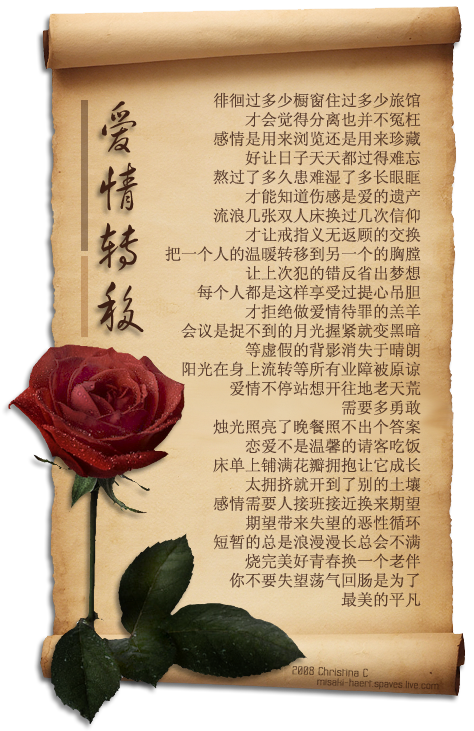 爱情转移
徘徊过多少橱窗住过多少旅馆
才会觉得分离也并不冤枉
感情是用来浏览还是用来珍藏
好让日子天天都过得难忘
熬过了多久患难湿了多长眼眶
才能知道伤感是爱的遗产
流浪几张双人床换过几次信仰
才让戒指义无返顾的交换
把一个人的温暖转移到另一个的胸膛
让上次犯的错反省出梦想
每个人都是这样享受过提心吊胆
才拒绝做爱情待罪的羔羊
会议是捉不到的月光握紧就变黑暗
等虚假的背影消失于晴朗
阳光在身上流转等所有业障被原谅
爱情不停站想开往地老天荒
需要多勇敢
烛光照亮了晚餐照不出个答案
恋爱不是温馨的请客吃饭
床单上铺满花瓣拥抱让它成长
太拥挤就开到了别的土壤
感情需要人接班接近换来期望
期望带来失望的恶性循环
短暂的总是浪漫漫长总会不满
烧完美好青春换一个老伴
你不要失望荡气回肠是为了
最美的平凡
2008 Christina C
misaki-haert.spaves.live.com